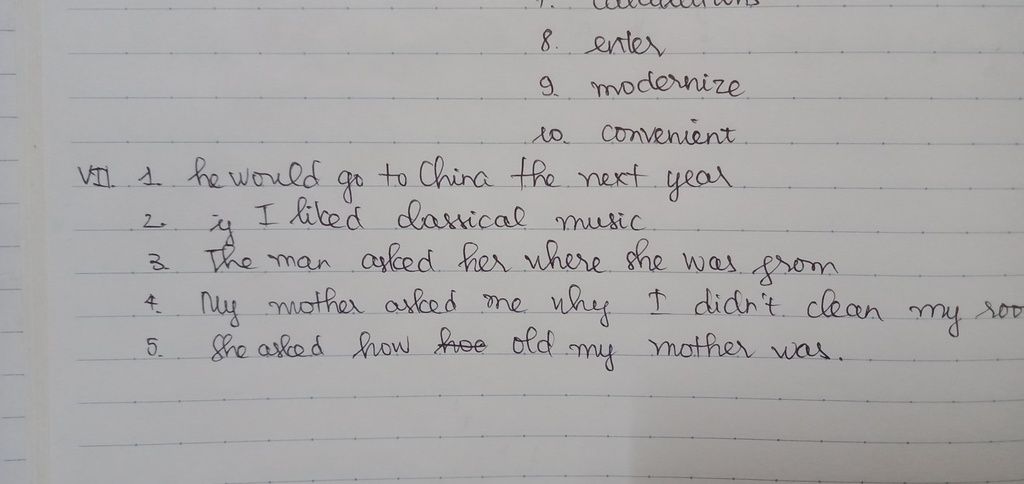 8. enter
9. modernize
10. convenient
VII. 1. he would go to China the next year
2. if I liked classical music
3. The man asked her where she was from
4. My mother asked me why I didn't clean my roo
5. She asked how old my mother was.